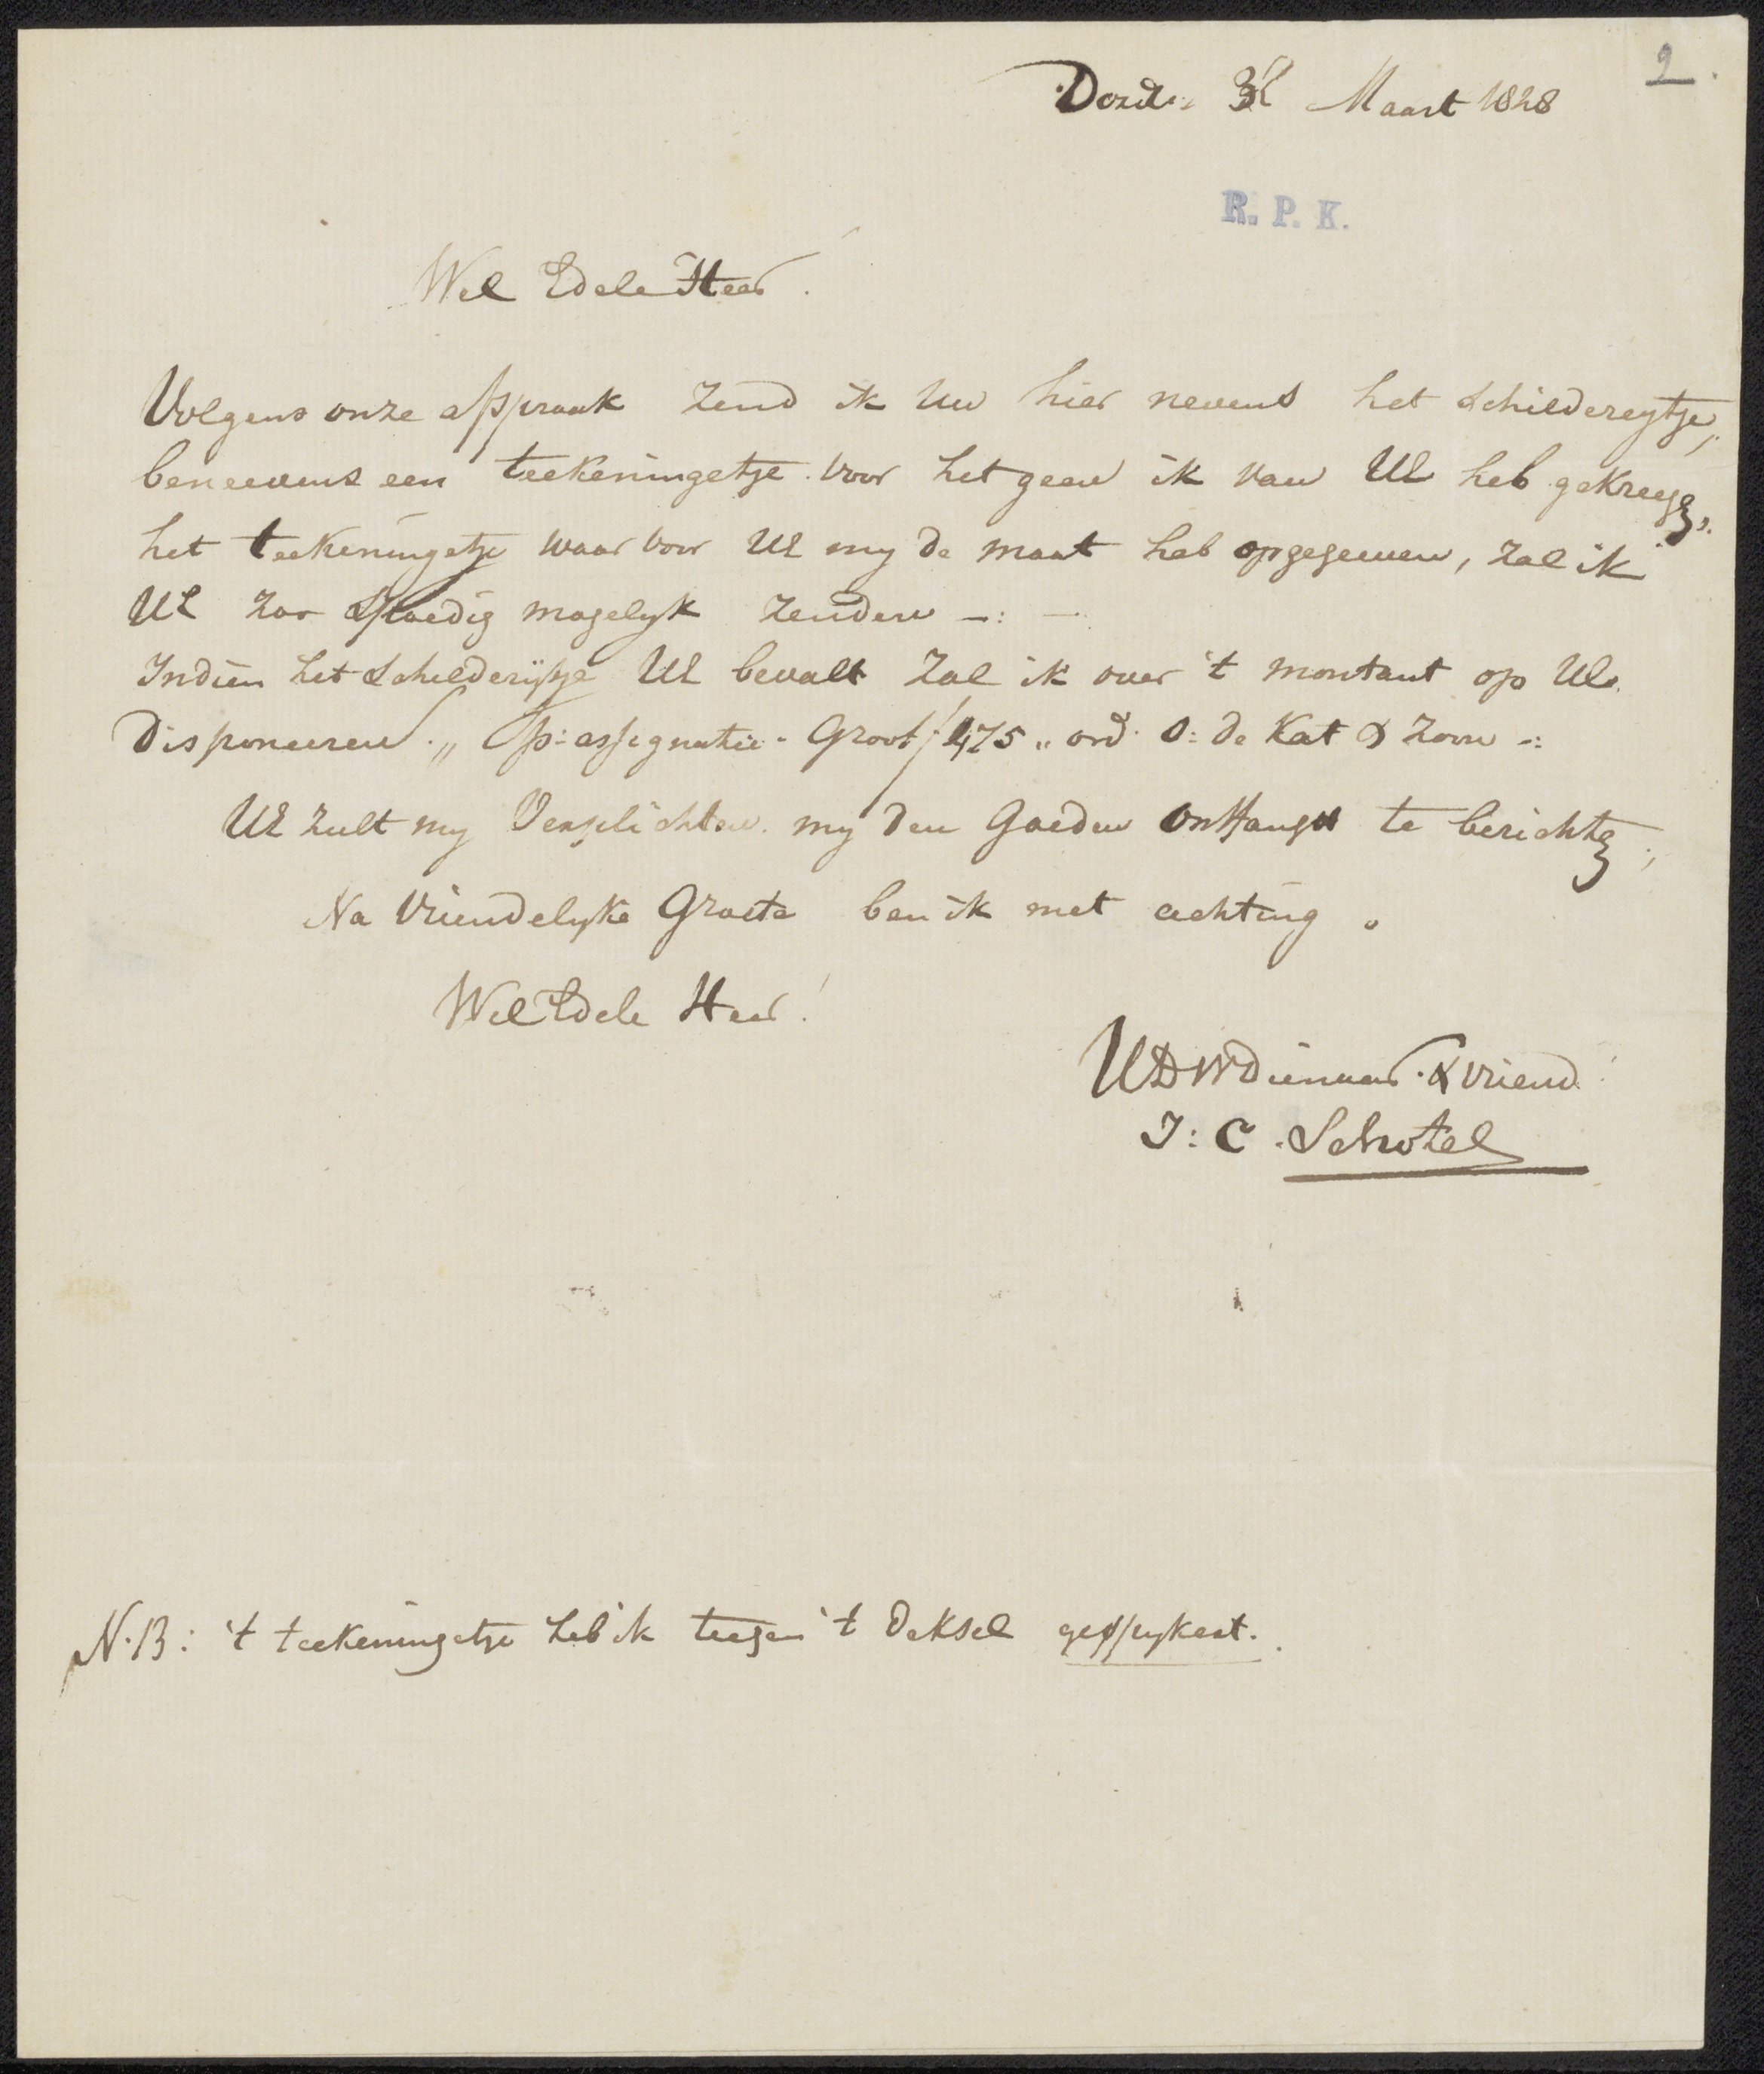 2.
Dordt 31 Maart 1828
R. P. K.
Wel Edele Heer!
Volgens onze afspraak zend ik Uw hier nevens het schildereytje,
beneevens een teekeningetje. voor het geen ik van UE heb gekreege,
het teekeningetje waar voor UE my de maat heb opgegeeven, zal ik
UE zoo spoedig mogelyk zenden -:-
Indien het schilderijtje UE bevalt zal ik over 't montant op UE
disponeeren. „ p: assignatie. Groot ƒ 475 „ ord. O: de Kat & Zoon -:
UE zult my verplichten. my den goeden ontfangst te berichte;
Na vriendelyke Groete ben ik met achting.
Wel Edele Heer!
UEDWDienaar. & vriend
J: C. Schotel
N.B: 't teekeningetje heb ik teegen 't deksel gespykert.